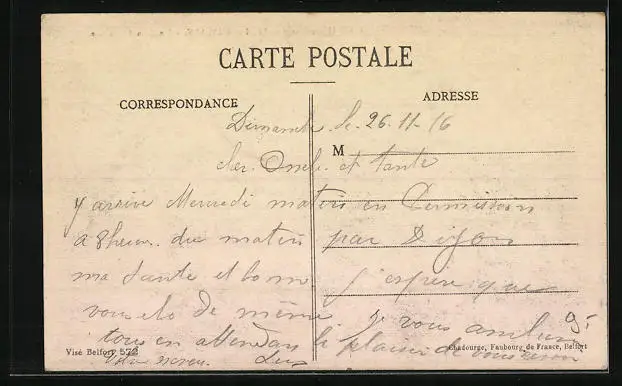 CARTE POSTALE
CORRESPONDANCE
ADRESSE
Dimanche le 26-11-16
M
cher Oncle et tante
J arrive Mercredi matin en Permission
a 8 heur du matin par Dijon
ma sante et bonne j'espere que
vous de même je vous
tous en attendan le plaisir de vous revoir
Votre neveu
9.-
Visé Belfort 572
Chadourge, Faubourg de France, Belfort